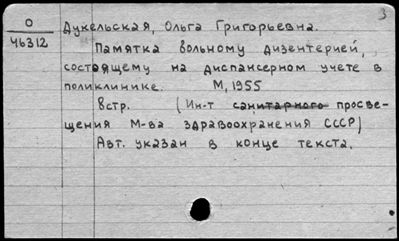 3
О
46312
Дукельская, Ольга Григорьевна.
Памятка больному дизентерией,
состоящему на диспансерном учете в
поликлинике. М, 1955
8стр. (Ин-т санитарного просве-
щения М-ва здравоохранения СССР)
Авт. указан в конце текста.